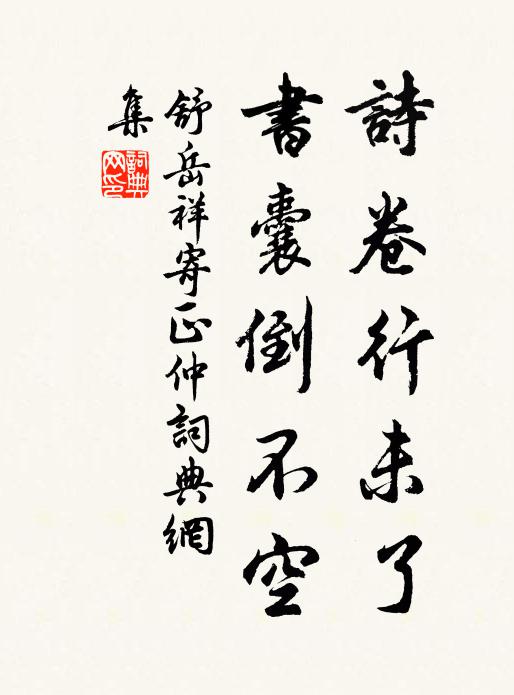 詩卷行未了
書囊倒不空
舒岳祥寄正仲詞典網
集
詞典網印